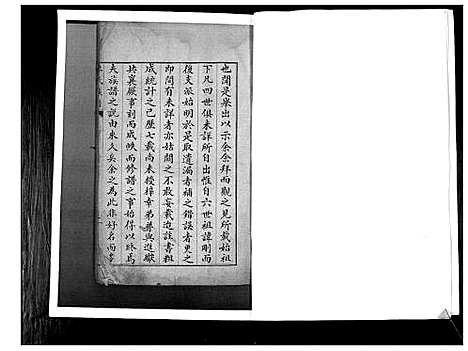 也閣是舉出以示余余拜而觀之見所載始祖
下凡四世俱未詳所自出惟自六世祖諱剛而
後支派始明於是取遺漏者補之錯誤者更之
即間有未詳者亦姑闕之不敢妄載逰註書祖
成統計之已歷七載尚未授梓幸弟善與逰獻
共襄厥事刻而成帙而修譜之事始得以竣焉
夫族譜之說由來久矣余之為此非好名而多